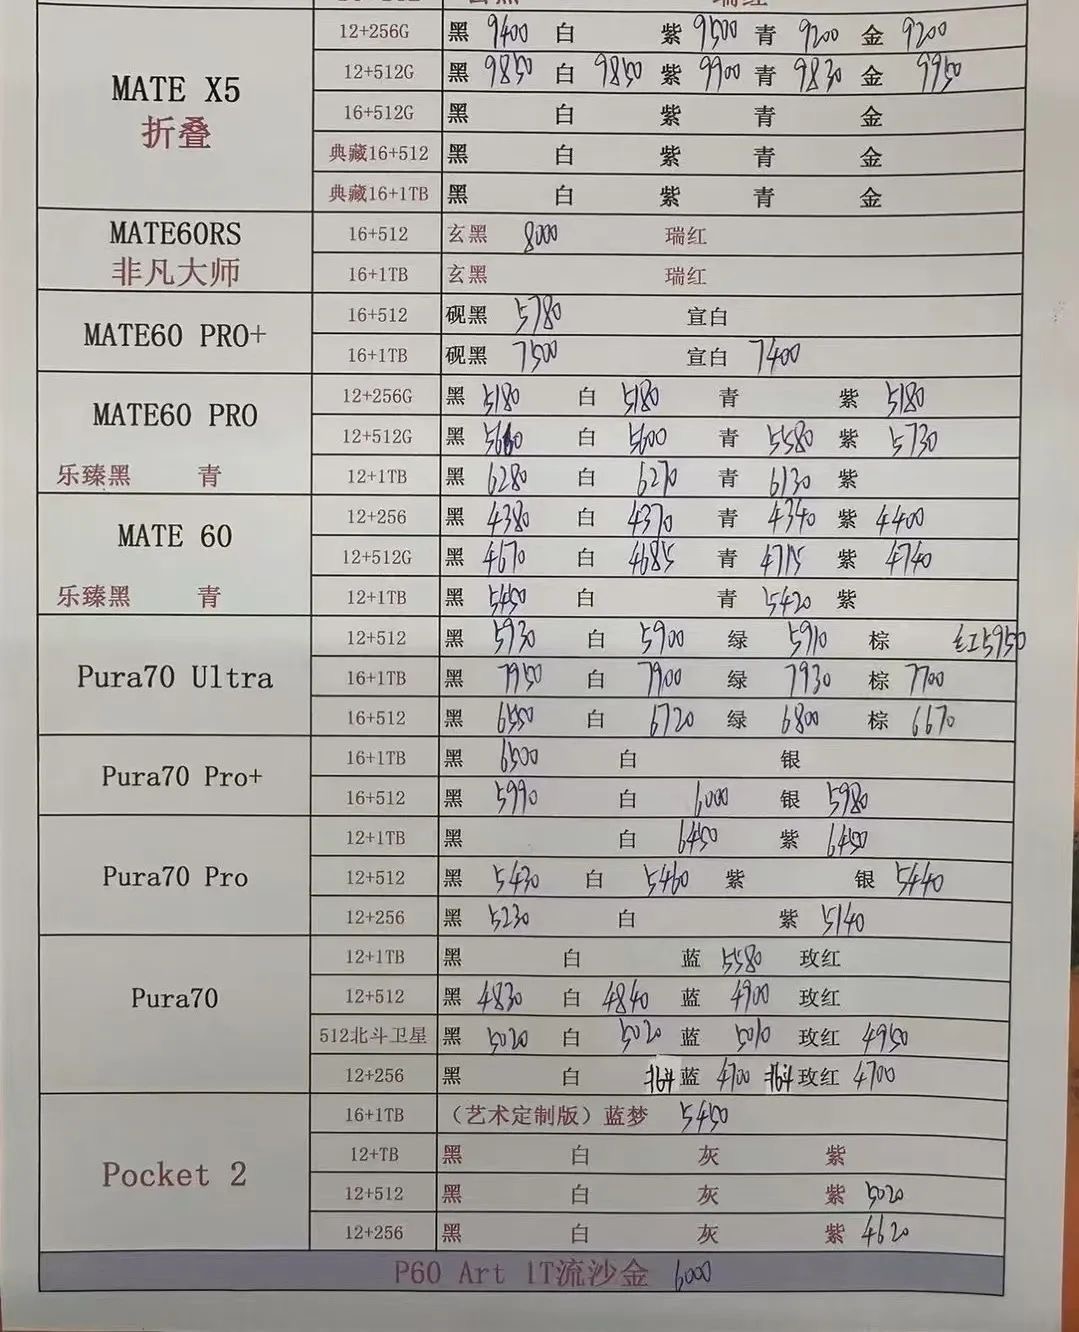 12+256G 黑 9400 白 紫 9500 青 9200 金 9200
MATE X5 12+512G 黑 9850 白 9850 紫 9900 青 9830 金 9950
折叠 16+512G 黑 白 紫 青 金
典藏16+512 黑 白 紫 青 金
典藏16+1TB 黑 白 紫 青 金
MATE60RS 16+512 玄黑 8000 瑞红
非凡大师 16+1TB 玄黑 瑞红
MATE60 PRO+ 16+512 砚黑 5780 宣白
16+1TB 砚黑 7500 宣白 7400
MATE60 PRO 12+256G 黑 5180 白 5180 青 紫 5180
12+512G 黑 白 5600 青 5580 紫 5730
乐臻黑 青 12+1TB 黑 6280 白 6270 青 6130 紫
MATE 60 12+256 黑 4380 白 4370 青 4340 紫 4400
12+512G 黑 4670 白 4685 青 4715 紫 4740
乐臻黑 青 12+1TB 黑 5450 白 青 5420 紫
Pura70 Ultra 12+512 黑 5930 白 5900 绿 5910 棕 红5950
16+1TB 黑 7950 白 7900 绿 7930 棕 7700
16+512 黑 6550 白 6720 绿 6800 棕 6670
Pura70 Pro+ 16+1TB 黑 6500 白 银
16+512 黑 5990 白 6000 银 5980
Pura70 Pro 12+1TB 黑 白 6450 紫 6450
12+512 黑 5430 白 5460 紫 银 5440
12+256 黑 5230 白 紫 5140
Pura70 12+1TB 黑 白 蓝 5580 玫红
12+512 黑 4830 白 4840 蓝 4900 玫红
512北斗卫星 黑 5020 白 5020 蓝 5010 玫红 4950
12+256 黑 白 北斗 蓝 4700 北斗 玫红 4700
Pocket 2 16+1TB （艺术定制版）蓝梦 5450
12+TB 黑 白 灰 紫
12+512 黑 白 灰 紫 5020
12+256 黑 白 灰 紫 4620
P60 Art 1T流沙金 6000